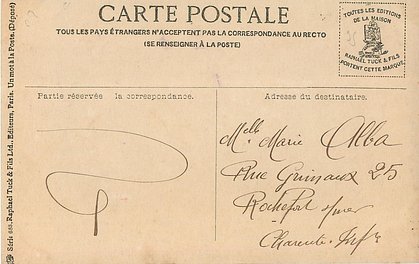 CARTE POSTALE
TOUS LES PAYS ÉTRANGERS N'ACCEPTENT PAS LA CORRESPONDANCE AU RECTO
(SE RENSEIGNER A LA POSTE)
TOUTES LES EDITIONS
DE LA MAISON
RAPHAEL TUCK & FILS
PORTENT CETTE MARQUE
Partie réservée à la correspondance.
Adresse du destinataire.
Melle Marie Alba
Rue Grimaux 25
Rochefort s/mer
Charente Infre
Série 885. Raphael Tuck & Fils Ltd., Editeurs, Paris. Un mot à la Poste. (Déposé)